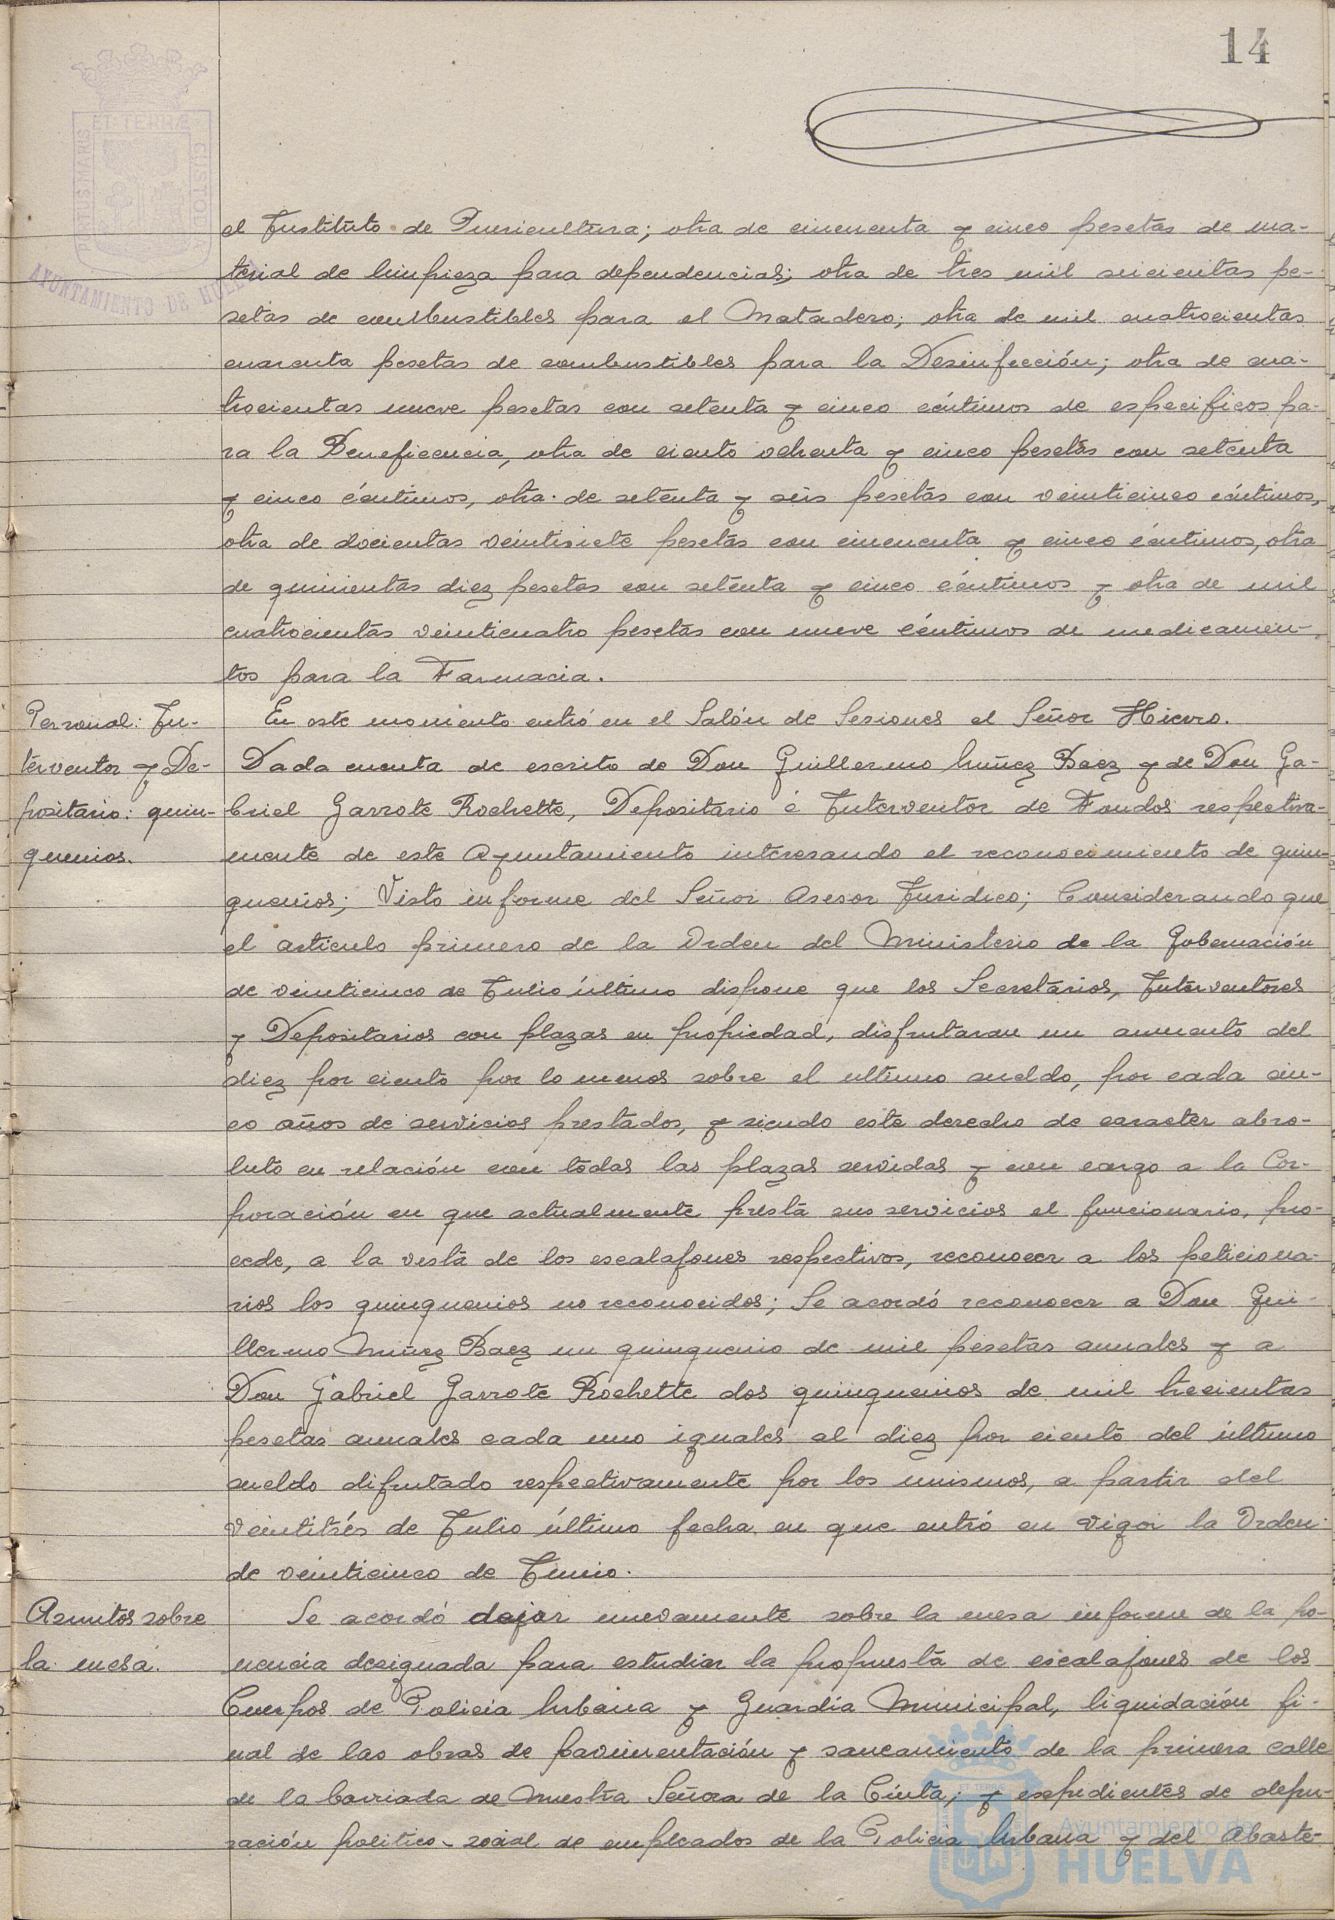 14
PORTUS MARIS ET TERRÆ CUSTODIA
AYUNTAMIENTO DE HUELVA
el Instituto de Puericultura; otra de cincuenta y cinco pesetas de ma-
terial de limpieza para dependencias; otra de tres mil seicientas pe-
setas de combustibles para el Matadero; otra de mil cuatrocientas
cuarenta pesetas de combustibles para la Desinfección; otra de cua-
trocientas nueve pesetas con setenta y cinco céntimos de especificos pa-
ra la Beneficencia, otra de ciento ochenta y cinco pesetas con setenta
y cinco céntimos, otra de setenta y seis pesetas con veinticinco céntimos,
otra de docientas veintisiete pesetas con cincuenta y cinco céntimos, otra
de quinientas diez pesetas con setenta y cinco céntimos y otra de mil
cuatrocientas veinticuatro pesetas con nueve céntimos de medicamen-
tos para la Farmacia.
Personal: In-
terventor y De-
positario: quin-
quenios.
En este momento entró en el Salón de Sesiones el Señor Hierro.
Dada cuenta de escrito de Don Guillermo Nuñez Baez y de Don Ga-
briel Garrote Rochette, Depositario é Interventor de Fondos respectiva-
mente de este Ayuntamiento interesando el reconocimiento de quin-
quenios; Visto informe del Señor Asesor Juridico; Considerando que
el articulo primero de la Orden del Ministerio de la Gobernación
de veinticinco de Julio último dispone que los Secretarios, Interventores
y Depositarios con plazas en propiedad, disfrutaran un aumento del
diez por ciento por lo menos sobre el ultimo sueldo, por cada cin-
co años de servicios prestados, y siendo este derecho de caracter abso-
luto en relación con todas las plazas servidas y con cargo a la Cor-
poración en que actualmente presta sus servicios el funcionario, pro-
cede, a la vista de los escalafones respectivos, reconocer a los peticiona-
rios los quinquenios no reconocidos; Se acordó reconocer a Don Gui-
llermo Nuñez Baez un quinquenio de mil pesetas anuales y a
Don Gabriel Garrote Rochette dos quinquenios de mil trecientas
pesetas anuales cada uno iguales al diez por ciento del último
sueldo difrutado respectivamente por los mismos, a partir del
veintitrés de Julio último fecha en que entró en vigor la Orden
de veinticinco de Junio.
Asuntos sobre
la mesa.
Se acordó dejar nuevamente sobre la mesa informe de la po-
nencia designada para estudiar la propuesta de escalafones de los
Cuerpos de Policia Urbana y Guardia Municipal, liquidación fi-
nal de las obras de pavimentación y saneamiento de la primera calle
de la barriada de Nuestra Señora de la Cinta, y expedientes de depu-
ración politico-social de empleados de la Policia Urbana y del Abaste-
Ayuntamiento de
HUELVA